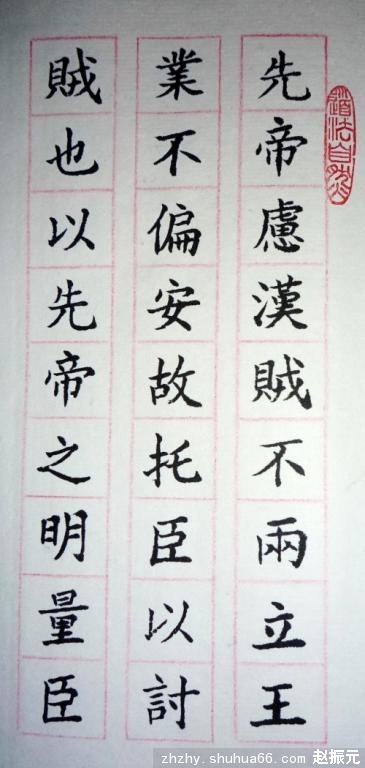 先帝慮漢賊不兩立王
業不偏安故托臣以討
賊也以先帝之明量臣
道法自然
zhzhy.shuhua66.com 赵振元